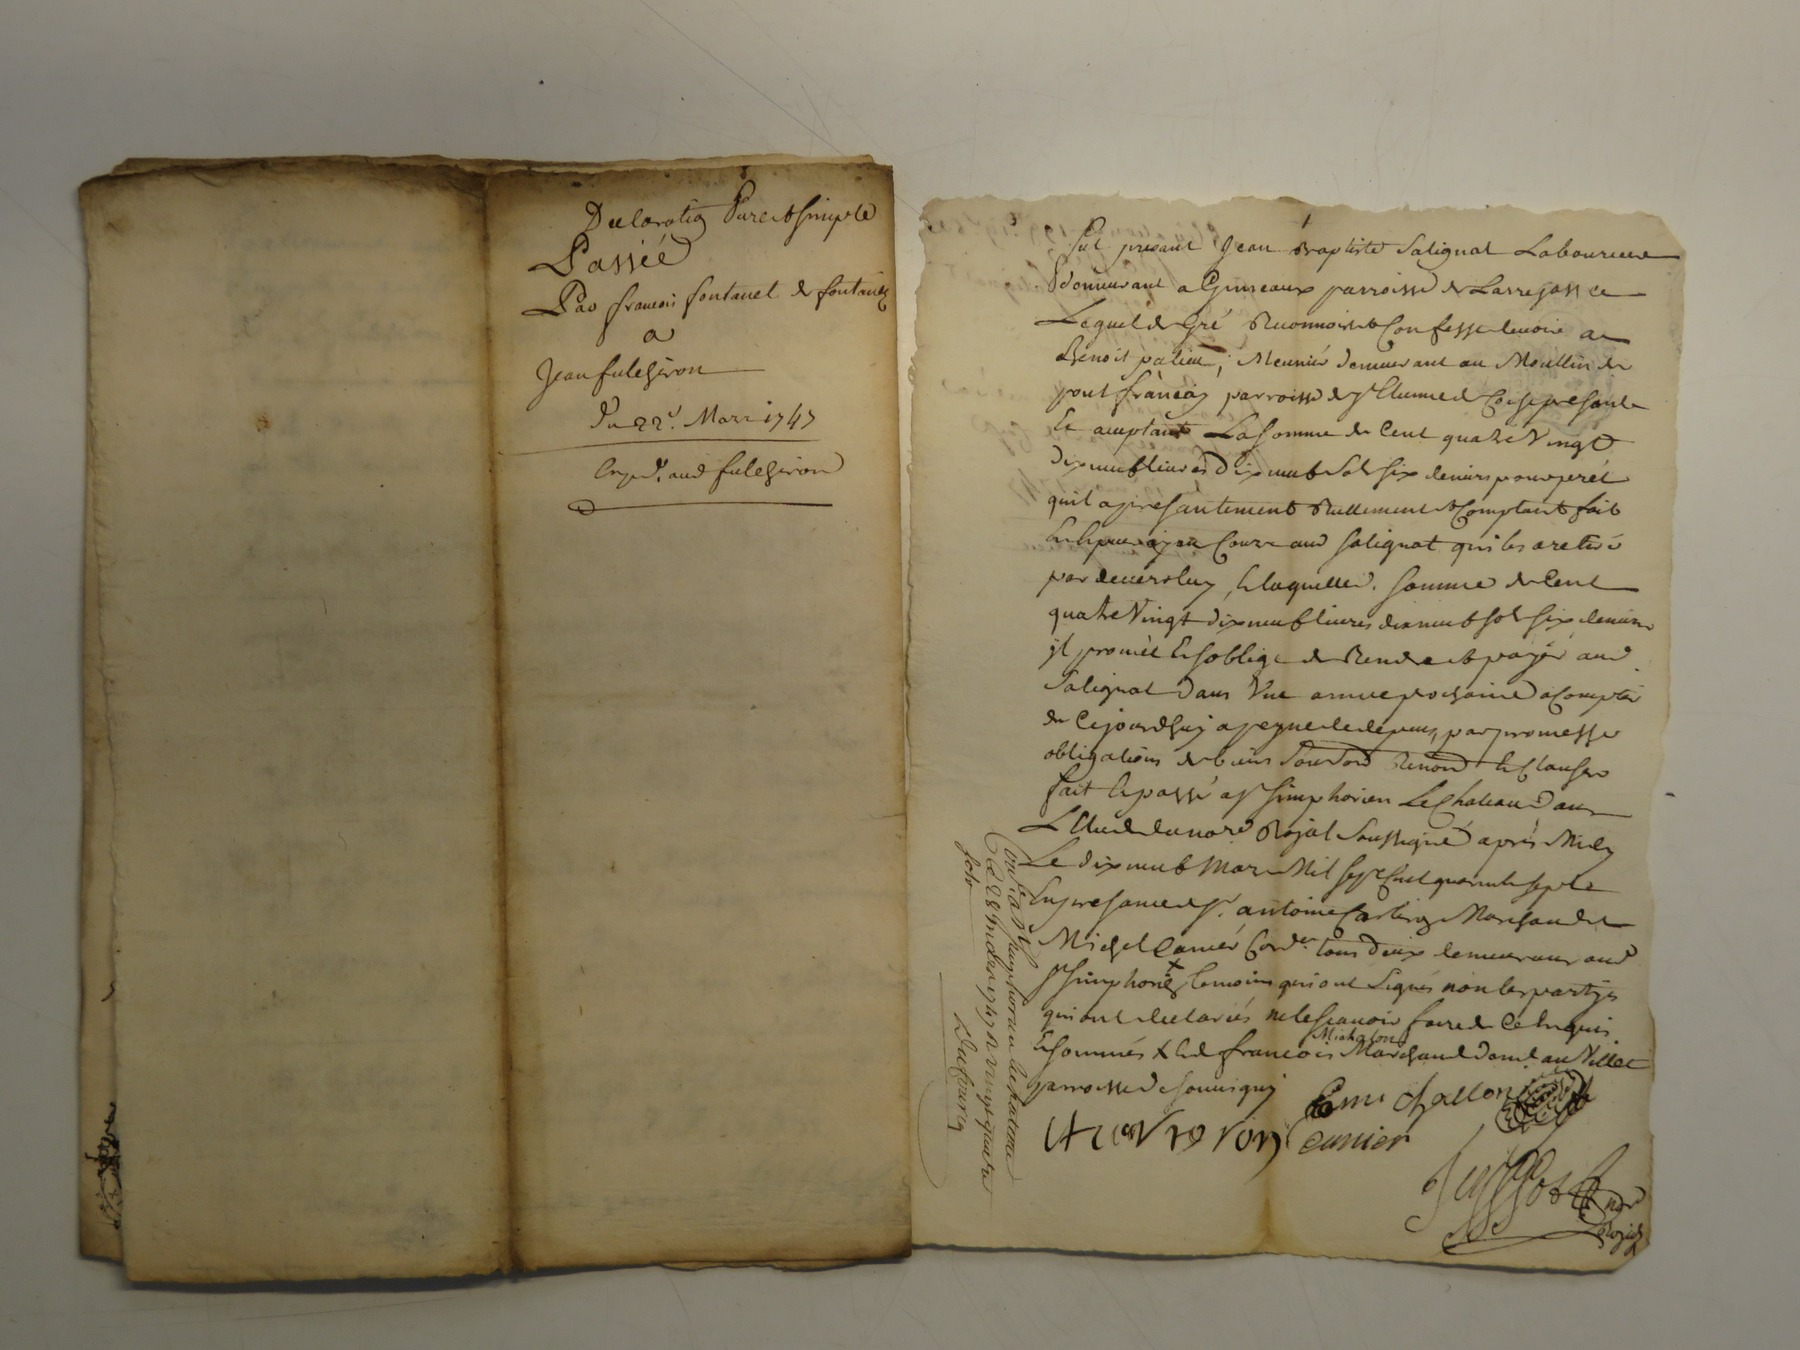 Declaration Pure & Simple
Passée
Par francois fontanel de fontanes
a
Jean fulchiron
Du 22e. Mars 1747
Exp.d. aud fulchiron
Fut present Jean Baptiste Salignat Laboureur
Demeurant a parroisse de Larrajasse
Lequel de Gré Reconnoist & Confesse devoir a
Benoist palieu, Meunier demeurant au Moullin de
pont françois parroisse de St Etienne de Coise presant
Et acceptant La Somme de Cent quatre Vingt
Dix neuf livres Dix neuf Sols six deniers pour prêt
quil a presantement Reellement & Comptant fait
aud Salignat qui les a retiré
par devers luy, Et laquelle somme de Cent
quatre Vingt dix neuf livres dix neuf sols six deniers
jl promêt Et soblige de Rendre & payér aud
Salignat dans Vne année prochaine a Compter
de Cejourdhuy a peyne de depens, par promesses
obligations de biens Renon Et Clauses
fait Et passé a St Simphorien Le Chateau dans
L'Etude du nore. Royal Soussigné après Midy
Le dix neuf Mars Mil sept Cent quarente sept
En presance de Sr. antoine Marchand &
Michel Canier Cord.er tous deux demeurans aud
St Simphorien, temoins qui ont Signés non les partyes
qui ont declarés ne le scavoir faire de Ce Enquis
Michalon
Et sommés X Et de francois Marchand dem.t au Villet
parroisse de Souvigny
michallon
Canier
nore
Royal
Con.lé a St Simphorien le chateau
le 28 Mars 1747 R vingt quatre
sols